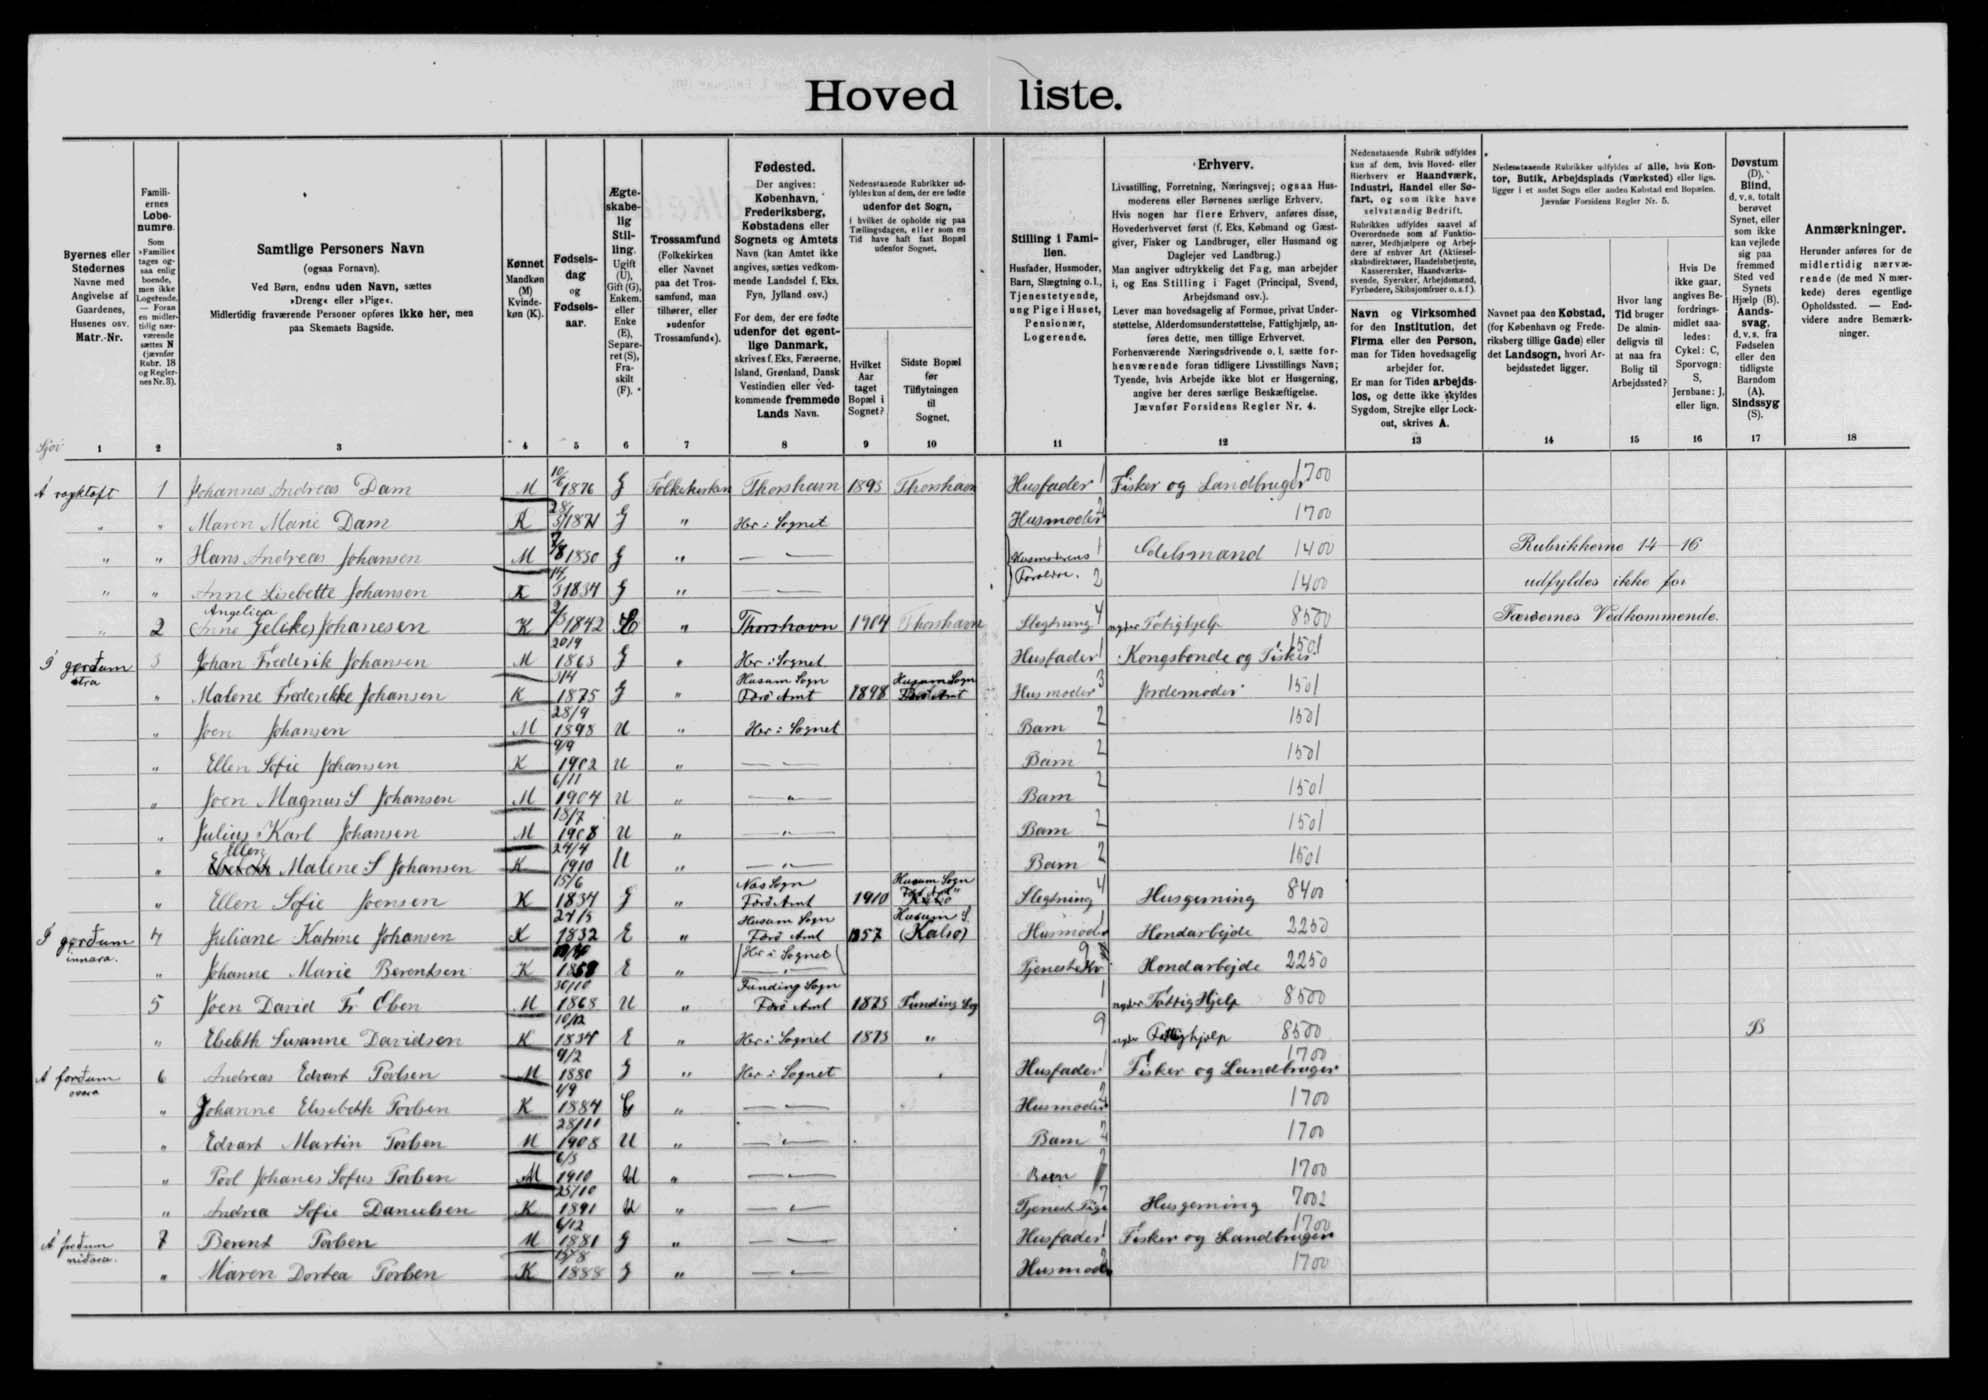 Hoved liste.
Byernes eller Stedernes Navne med Angivelse af Gaardenes, Husenes osv. Matr.-Nr.
Familiernes Løbenumre. Som »Familie« tages ogsaa enlig boende, men ikke Logerende. — Foran en midlertidig nærværende sættes N (jævnfør Rubr. 18 og Regler nes Nr. 3).
Samtlige Personers Navn (ogsaa Fornavn). Ved Børn, endnu uden Navn, sættes »Dreng« eller »Pige«. Midlertidig fraværende Personer opføres ikke her, men paa Skemaets Bagside.
Kønnet Mandkøn (M) Kvindekøn (K).
Fødselsdag og Fødselsaar.
Ægteskabelig Stilling. Ugift (U), Gift (G), Enkem. eller Enke (E), Separeret (S), Fraskilt (F).
Trossamfund (Folkekirken eller Navnet paa det Trossamfund, man tilhører, eller »udenfor Trossamfund«).
Fødested. Der angives: København, Frederiksberg, Købstadens eller Sognets og Amtets Navn (kan Amtet ikke angives, sættes vedkommende Landsdel f. Eks. Fyn, Jylland osv.) For dem, der ere fødte udenfor det egentlige Danmark, skrives f. Eks. Færøerne, Island, Grønland, Dansk Vestindien eller vedkommende fremmede Lands Navn.
Nedenstaaende Rubrikker udfyldes kun af dem, der ere fødte udenfor det Sogn, i hvilket de opholde sig paa Tællingsdagen, eller som en Tid have haft fast Bopæl udenfor Sognet.
Hvilket Aar taget Bopæl i Sognet?
Sidste Bopæl før Tilflytningen til Sognet.
Stilling i Familien. Husfader, Husmoder, Barn, Slægtning o.l., Tjenestetyende, ung Pige i Huset, Pensionær, Logerende.
Erhverv. Livsstilling, Forretning, Næringsvej; ogsaa Husmoderens eller Børnenes særlige Erhverv. Hvis nogen har flere Erhverv, anføres disse, Hovederhvervet først (f. Eks. Købmand og Gæstgiver, Fisker og Landbruger, eller Husmand og Daglejer ved Landbrug.) Man angiver udtrykkelig det Fag, man arbejder i, og Ens Stilling i Faget (Principal, Svend, Arbejdsmand osv.). Lever man hovedsagelig af Formue, privat Understøttelse, Alderdomsunderstøttelse, Fattighjælp, anføres dette, men tillige Erhvervet. Forhenværende Næringsdrivende o. l. sætte forhenværende foran tidligere Livsstillings Navn; Tyende, hvis Arbejde ikke blot er Husgerning, angive her deres særlige Beskæftigelse. Jævnfør Forsidens Regler Nr. 4.
Nedenstaaende Rubrik udfyldes kun af dem, hvis Hoved- eller Bierhverv er Haandværk, Industri, Handel eller Søfart, og som ikke have selvstændig Bedrift.
Navn og Virksomhed for den Institution, det Firma eller den Person, man for Tiden hovedsagelig arbejder for. Er man for Tiden arbejdsløs, og dette ikke skyldes Sygdom, Strejke eller Lockout, skrives A.
Nedenstaaende Rubrikker udfyldes af alle, hvis Kontor, Butik, Arbejdsplads (Værksted) eller lign. ligger i et andet Sogn eller anden Købstad end Bopælen. Jævnfør Forsidens Regler Nr. 5.
Navnet paa den Købstad, (for København og Frederiksberg tillige Gade) eller det Landsogn, hvori Arbejdsstedet ligger.
Hvor lang Tid bruger De almindeligvis til at naa fra Bolig til Arbejdssted?
Hvis De ikke gaar, angives Befordringsmidlet saaledes: Cykel: C, Sporvogn: S, Jernbane: J, eller lign.
Døvstum (D), Blind, d. v. s. totalt berøvet Synet, eller som ikke kan vejlede sig paa fremmed Sted ved Synets Hjælp (B). Aandssvag, d. v. s. fra Fødselen eller den tidligste Barndom (A). Sindssyg (S).
Anmærkninger. Herunder anføres for de midlertidig nærværende (de med N mærkede) deres egentlige Opholdssted. — Endvidere andre Bemærkninger.
1 2 3 4 5 6 7 8 9 10 11 12 13 14 15 16 17 18
1 Johannes Andreas Dam M 1876 G Folkekirken Thorshavn 1895 Thorshavn Husfader 1 Fisker og Landbruger 1700
" " Maren Marie Dam K 1871 G " Her i Sognet Husmoder 2 1700
" " Hans Andreas Johansen M 1830 G " — " — Husmoderens 1 Odelsmand 1400 Rubrikkerne 14–16
" " Anne Lisebette Johansen K 1834 G " — " — Forældre. 2 1400 udfyldes ikke for
" 2 Angelica Johanesen K 1842 " Thorshavn 1904 Thorshavn Slegtning 4 nyder Fatighjelp 8500 Færøernes Vedkommende.
Í gørðum 3 Johan Frederik Johansen M 20/9 1863 G " Her i Sognet Husfader 1 Kongsbonde og Fisker 1501
" Malene Frederikke Johansen K 1875 G " Husum Sogn Færø Amt 1898 Husum Sogn Færø Amt Husmoder 3 Jordemoder 1501
" Joen Johansen M 28/9 1898 U " Her i Sognet Barn 2 1501
" Ellen Sofie Johansen K 9/9 1902 U " — " — Barn 2 1501
" Joen Magnus S Johansen M 6/11 1904 U " — " — Barn 2 1501
" Julius Karl Johansen M 18/7 1908 U " — " — Barn 2 1501
" Ellen Malene S Johansen K 24/4 1910 U " — " — Barn 2 1501
" Ellen Sofie Joensen K 15/6 1834 G " Næs Sogn Færø Amt 1910 Husum Sogn Slegtning 4 Husgerning 8400
Í gørðum innara. 4 Juliane Katrine Johansen K 1832 E " Husum Sogn Færø Amt 1857 Husum S. (Kalsø) Husmoder 1 Hondarbejde 2250
" Johanne Marie Berentsen K E " Her i Sognet Tjeneste Kv 9 Hondarbejde 2250
5 Joen David Fr Olsen M 30/10 1868 U " Funding Sogn Færø Amt 1873 Funding Sog 1 nyder Fattig Hjelp 8500
" Elsebeth Susanne Davidsen K 10/12 1834 E " Her i Sognet 1873 " 9 nyder Fattighjelp 8500 B
6 Andreas Edvart Povlsen M 9/2 1880 G " Her i Sognet Husfader 1 Fisker og Landbruger 1700
" Johanne Elisebeth Povlsen K 4/9 1884 G " — " — Husmoder 2 1700
" Edvart Martin Povlsen M 28/11 1908 U " — " — Barn 2 1700
" Povl Johanes Sofus Povlsen M 1910 U " — " — Barn 2 1700
" Andrea Sofie Danielsen K 25/10 1891 U " — " — Tjenest Pige 7 Husgerning 7002
7 Berent Povlsen M 6/12 1881 G " — " — Husfader 1 Fisker og Landbruger 1700
" Maren Dortea Povlsen K 15/8 1888 G " — " — Husmoder 2 1700